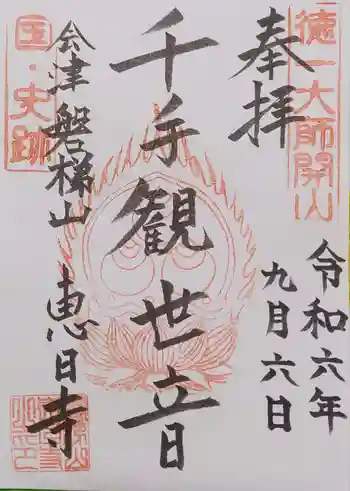 徳一大師開山
奉拝
令和六年
九月六日
千手観世音
会津磐梯山
恵日寺
国・史跡